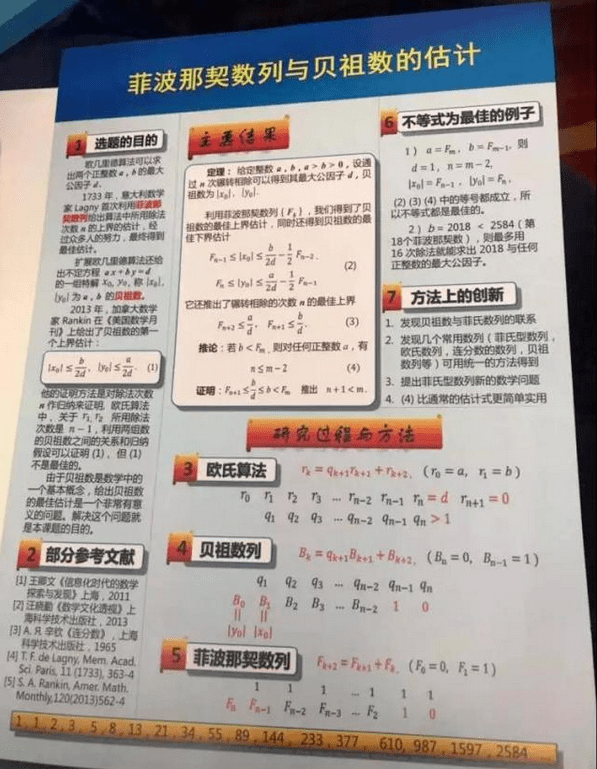 菲波那契数列与贝祖数的估计
1 选题的目的
欧几里德算法可以求
出两个正整数 a, b 的最大
公因子 d.
1733 年，意大利数学
家 Lagny 首次利用菲波那
契数列给出算法中所用除法
次数 n 的上界的估计，经
过众多人的努力，最终得到
最佳估计。
扩展欧几里德算法还给
出不定方程 ax+by=d
的一组特解 x₀, y₀, 称 |x₀|,
|y₀| 为 a, b 的贝祖数。
2013 年，加拿大数学
家 Rankin 在《美国数学月
刊》上给出了贝祖数的第一
个上界估计：
|x₀| ≤ b/2d, |y₀| ≤ a/2d. (1)
他的证明方法是对除法次数
n 作归纳来证明, 欧氏算法
中，关于 r₁, r₂ 所用除法
次数是 n−1，利用两组数
的贝祖数之间的关系和归纳
假设可以证明 (1)、但 (1)
不是最佳的。
由于贝祖数是数学中的
一个基本概念，给出贝祖数
的最佳估计是一个非常有意
义的问题。解决这个问题就
是本课题的目的。
2 部分参考文献
[1] 王卿文《信息化时代的数学
探索与发现》上海，2011
[2] 汪晓勤《数学文化透视》上
海科学技术出版社，2013
[3] А. Я. 辛钦《连分数》，上海
科学技术出版社，1965
[4] T. F. de Lagny, Mem. Acad.
Sci. Paris, 11 (1733), 363-4
[5] S. A. Rankin, Amer. Math.
Monthly,120(2013)562-4
主要结果
定理：给定整数 a, b, a > b > 0，设通
过 n 次辗转相除可以得到其最大公因子 d，贝
祖数为 |x₀|, |y₀|.
利用菲波那契数列 {Fₖ}，我们得到了贝
祖数的最佳上界估计，同时还得到贝祖数的最
佳下界估计
Fₙ₋₁ ≤ |x₀| ≤ b/2d − 1/2 Fₙ₋₂.
(2)
Fₙ ≤ |y₀| ≤ a/2d − 1/2 Fₙ₋₁
它还推出了辗转相除的次数 n 的最佳上界
Fₙ₊₂ ≤ a/d, Fₙ₊₁ ≤ b/d. (3)
推论：若 b < Fₘ, 则对任何正整数 a，有
n ≤ m − 2 (4)
证明：Fₙ₊₁ ≤ b/d ≤ b < Fₘ 推出 n + 1 < m.
6 不等式为最佳的例子
1） a = Fₘ, b = Fₘ₋₁, 则
d = 1, n = m − 2,
|x₀| = Fₙ₋₁, |y₀| = Fₙ,
(2) (3) (4) 中的等号都成立，所
以不等式都是最佳的。
2）b = 2018 < 2584（第
18个菲波那契数），则最多用
16 次除法就能求出 2018 与任何
正整数的最大公因子。
7 方法上的创新
1. 发现贝祖数与菲氏数列的联系
2. 发现几个常用数列（菲氏型数列，
欧氏数列，连分数的数列，贝祖
数列等）可用统一的方法得到
3. 提出菲氏型数列新的数学问题
4. (4) 比通常的估计式更简单实用
研究过程与方法
3 欧氏算法 rₖ = qₖ₊₁rₖ₊₁ + rₖ₊₂, (r₀ = a, r₁ = b)
r₀ r₁ r₂ r₃ ... rₙ₋₂ rₙ₋₁ rₙ = d rₙ₊₁ = 0
q₁ q₂ q₃ ... qₙ₋₂ qₙ₋₁ qₙ > 1
4 贝祖数列 Bₖ = qₖ₊₁Bₖ₊₁ + Bₖ₊₂, (Bₙ = 0, Bₙ₋₁ = 1)
q₁ q₂ q₃ ... qₙ₋₂ qₙ₋₁ qₙ
B₀ B₁ B₂ B₃ ... Bₙ₋₂ 1 0
|| ||
|y₀| |x₀|
5 菲波那契数列 Fₖ₊₂ = Fₖ₊₁ + Fₖ, (F₀ = 0, F₁ = 1)
1 1 1 ... 1 1 1
Fₙ Fₙ₋₁ Fₙ₋₂ Fₙ₋₃ ... F₂ 1 0
1, 1, 2, 3, 5, 8, 13, 21, 34, 55, 89, 144, 233, 377, 610, 987, 1597, 2584 ...